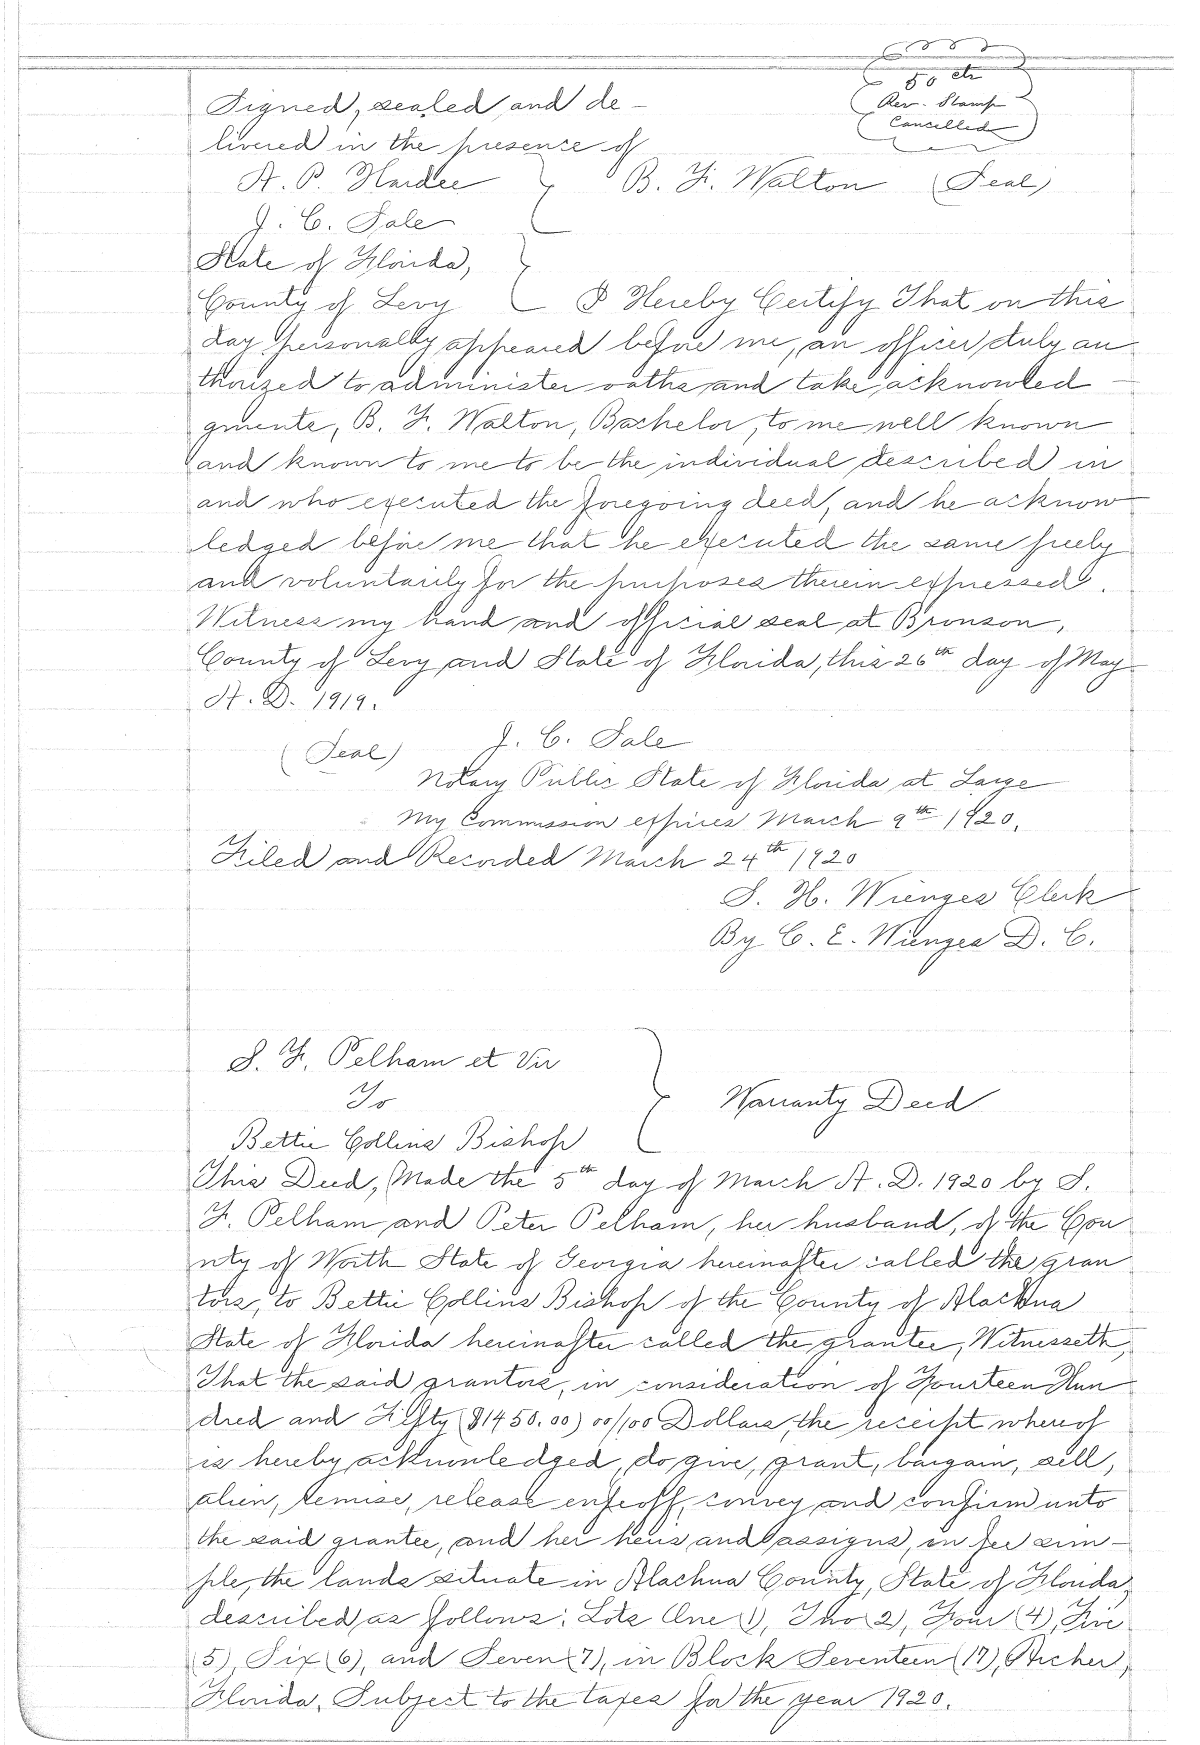 50 cts
Rev. Stamp
Cancelled
Signed, sealed and de-
livered in the presence of
A. P. Hardee B. F. Walton (Seal)
J. C. Sale
State of Florida,
County of Levy I Hereby Certify That on this
day personally appeared before me, an officer duly au
thorized to administer oaths and take acknowled-
gments, B. F. Walton, Bachelor, to me well known
and known to me to be the individual described in
and who executed the foregoing deed, and he acknow
ledged before me that he executed the same freely
and voluntarily for the purposes therein expressed.
Witness my hand and official seal at Bronson,
County of Levy and State of Florida, this 26th day of May
A. D. 1919.
(Seal) J. C. Sale
Notary Public State of Florida at Large
My Commission expires March 9th 1920.
Filed and Recorded March 24th 1920
S. H. Wienges Clerk
By C. E. Wienges D. C.
S. F. Pelham et Vir
To Warranty Deed
Bettie Collins Bishop
This Deed, Made the 5th day of March A. D. 1920 by S.
F. Pelham and Peter Pelham, her husband, of the Cou
nty of Worth State of Georgia hereinafter called the gran
tors, to Bettie Collins Bishop of the County of Alachua
State of Florida hereinafter called the grantee, Witnesseth,
That the said grantors, in consideration of Fourteen Hun
dred and Fifty ($1450.00) 00/100 Dollars, the receipt whereof
is hereby acknowledged, do give, grant, bargain, sell,
alien, remise, release enfeoff, convey and confirm unto
the said grantee, and her heirs and assigns, in fee sim-
ple, the lands situate in Alachua County, State of Florida,
described as follows: Lots One (1), Two (2), Four (4), Five
(5), Six (6), and Seven (7), in Block Seventeen (17), Archer,
Florida. Subject to the taxes for the year 1920.